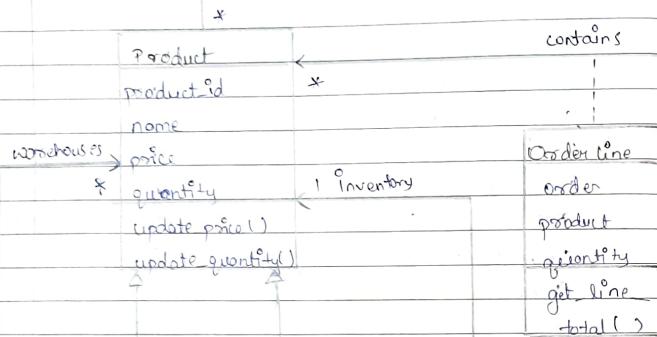 *
contains
Product
product_id
*
name
warehouses
price
*
quantity
1 inventory
update price()
update_quantity()
Order line
order
product
quantity
get_line
total()